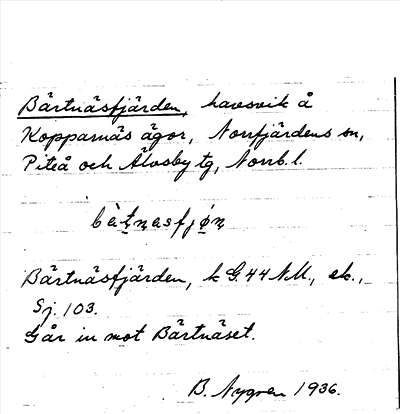 Bärtnäsfjärden, havsvik å
Kopparnäs ägor, Norrfjärdens sn,
Piteå och Älvsby tg, Norrb. l.
Bärtnäsfjärden, k G. 44 N.M., ek.,
Sj. 103.
Går in mot Bärtnäset.
B. Nygren 1936.